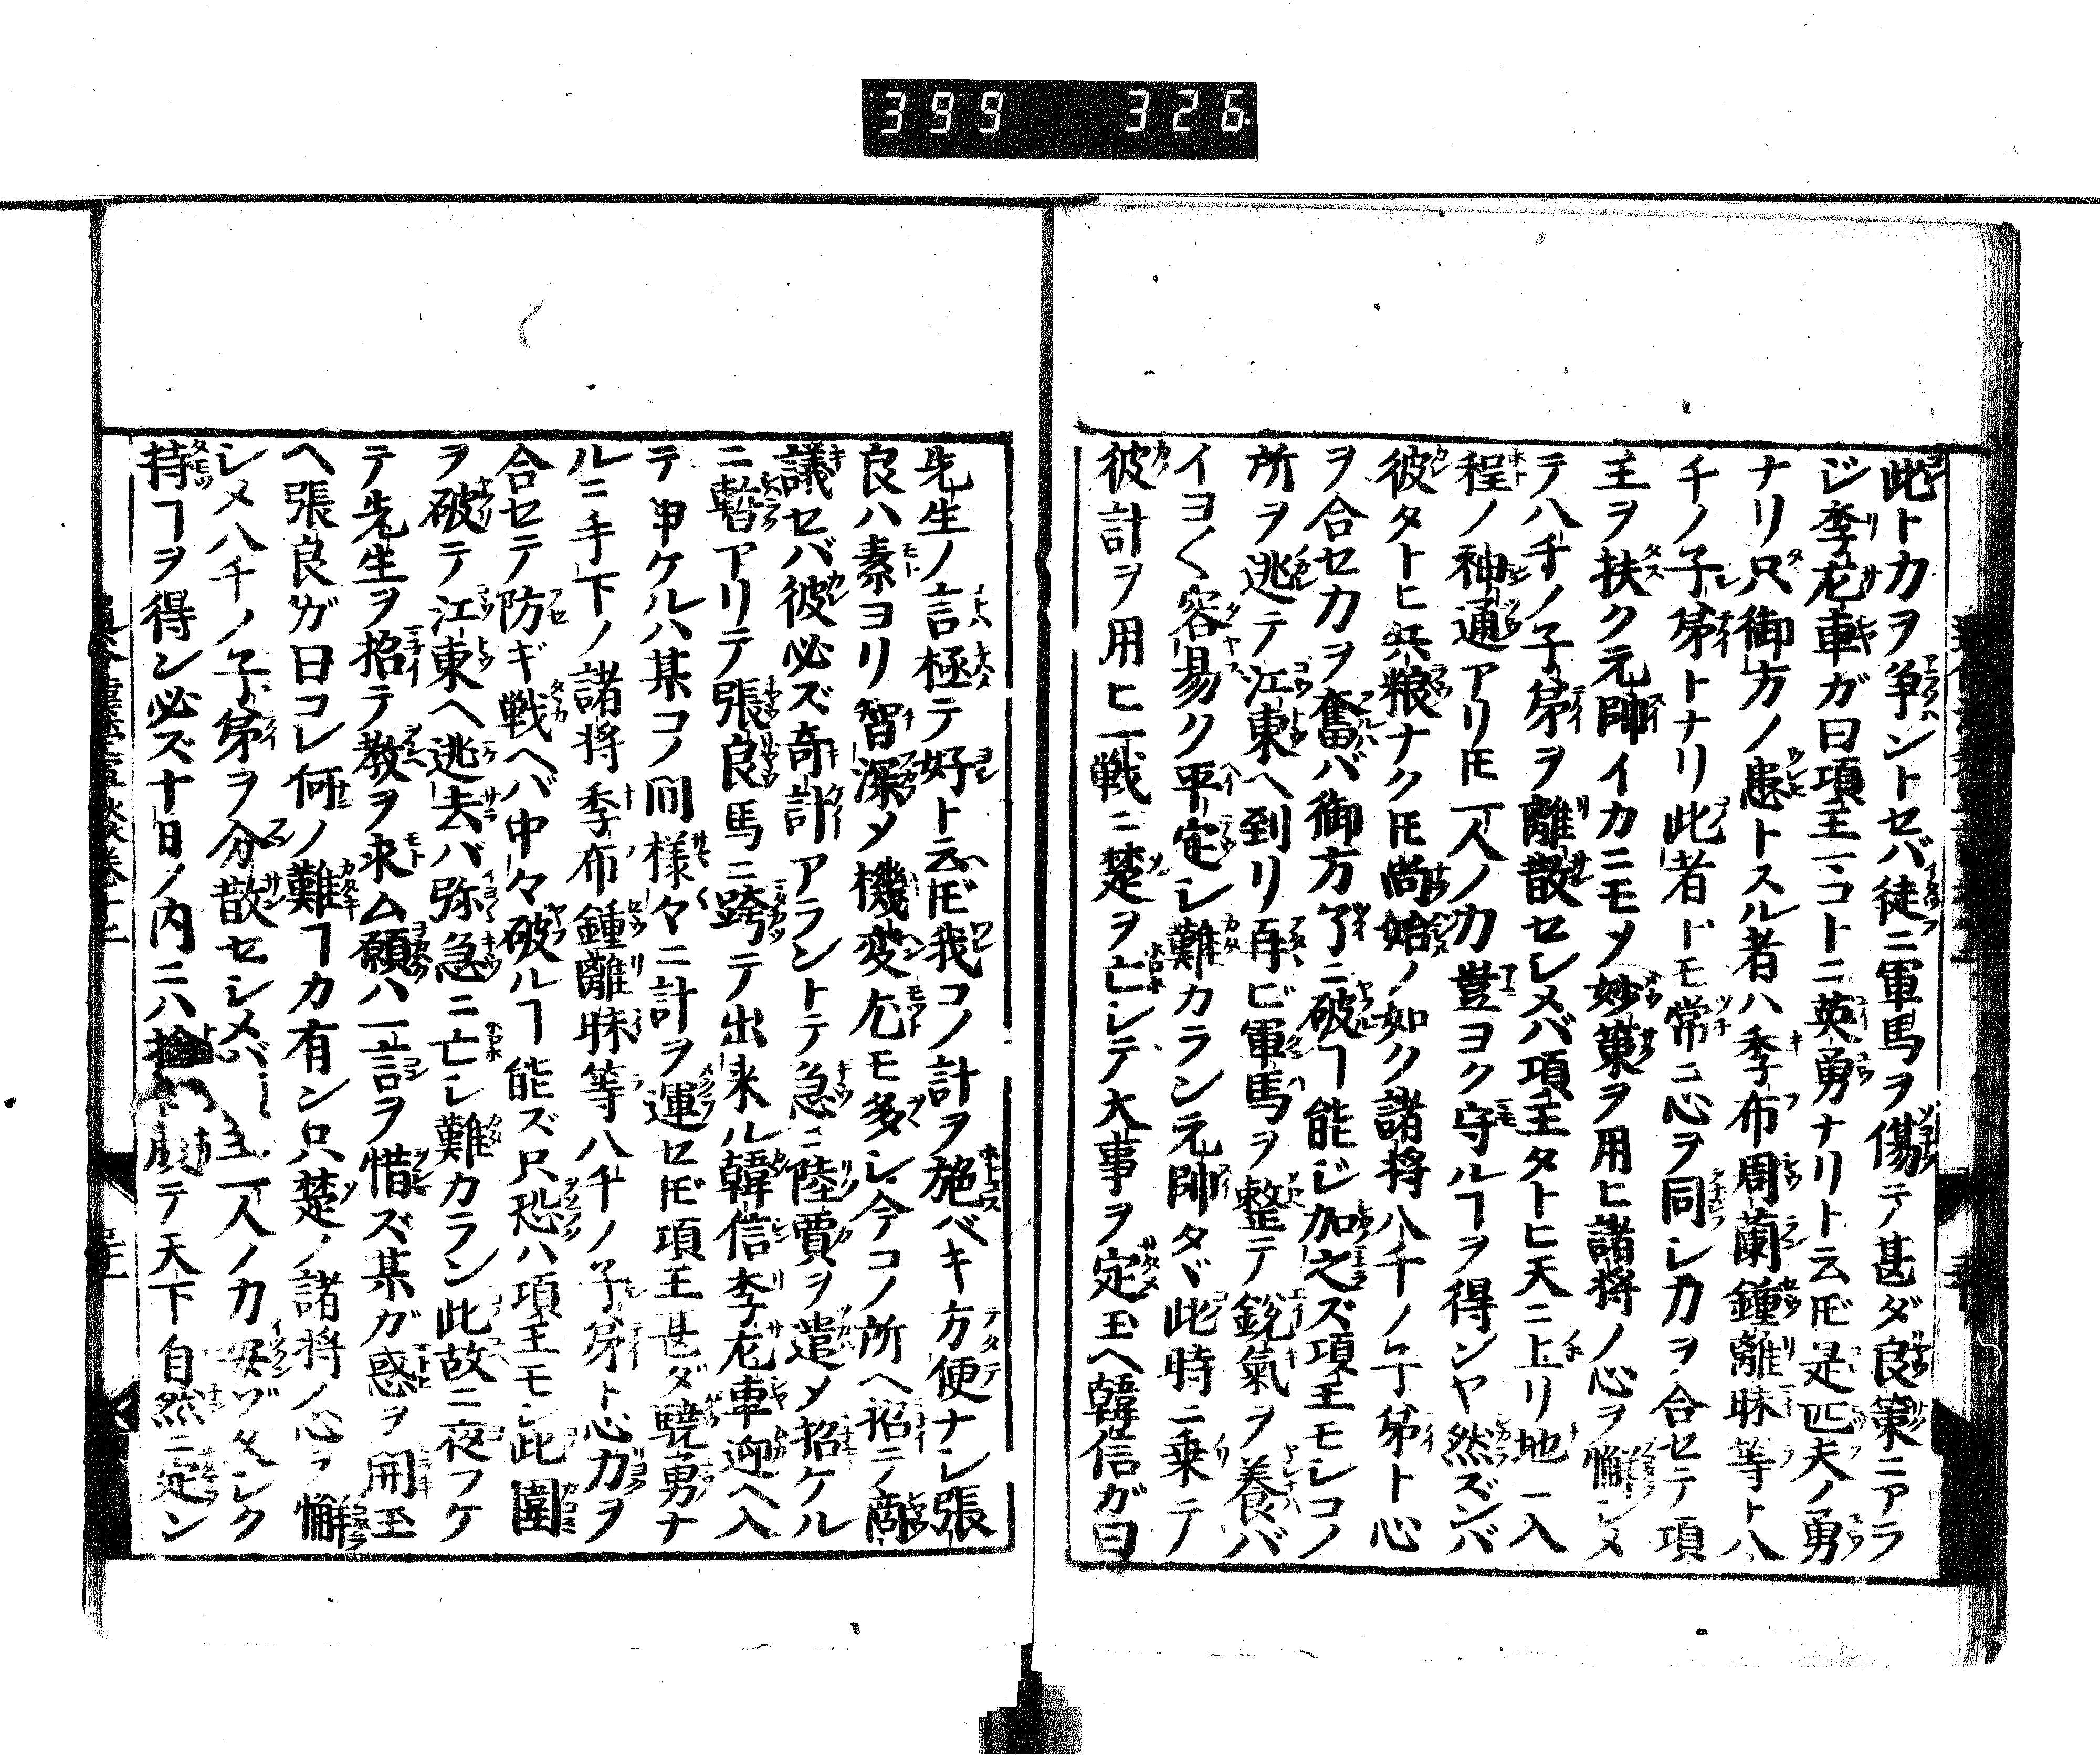 399 326
此ト力ヲ争ントセバ徒ニ軍馬ヲ傷テ甚ダ良策ニアラ
ジ李左車ガ曰項王一コトニ英勇ナリト云𪜈是匹夫ノ勇
ナリ只御方ノ患トスル者ハ季布周蘭鍾離昧等ト八
千ノ子弟トナリ此者ドモ常ニ心ヲ同シ力ヲ合セテ項
王ヲ扶ク元帥イカニモヲ妙策ヲ用ヒ諸将ノ心ヲ懈シメ
テ八千ノ子弟ヲ離散セシメバ項王タトヒ天ニ上リ地ニ入
程ノ神通アリ𪜈一人ノ力豈ヨク守ルヿヲ得ンヤ然ズンバ
彼タトヒ兵粮ナク𪜈尚始ノ如ク諸将八千ノ子弟ト心
ヲ合セ力ヲ奮バ御方了ニ破ヿ能ジ加之ズ項王モシコノ
所ヲ逃テ江東ヘ到リ再ビ軍馬ヲ整テ鋭氣ヲ養バ
イヨ〱容易ク平定シ難カラン元帥タヾ此時ニ乗テ
彼計ヲ用ヒ一戦ニ楚ヲ亡シテ大事ヲ定玉ヘ韓信ガ曰
先生ノ言極テ好ト云𪜈我コノ計ヲ施ベキ方便ナシ張
良ハ素ヨリ智深メ機変尤モ多シ今コノ所ヘ招ニノ敵
議セバ彼必ズ奇計アラントテ急ニ陸賈ヲ遣メ招ケル
ニ暫アリテ張良馬ニ跨テ出来ル韓信李左車迎ヘ入
テ申ケルハ某コノ間様々ニ計ヲ運セ𪜈項王甚ダ驍勇ナ
ルニ手下ノ諸将季布鍾離昧等八千ノ子弟ト心力ヲ
合セテ防ギ戦ヘバ中々破ルヿ能ズ只恐ハ項王モシ此圍
ヲ破テ江東ヘ逃去バ弥急ニ亡シ難カラン此故ニ夜フケ
テ先生ヲ招テ教ヲ求ム願ハ一言ヲ惜ズ某ガ惑ヲ開玉
ヘ張良ガ曰コレ何ノ難ヿカ有ン只楚ノ諸将ノ心ヲ懈
シメ八千ノ子弟ヲ分散セシメバ王一人ノ力安ヅクンク
持ヿヲ得ン必ズ十日ノ内ニハ テ天下自然ニ定ン